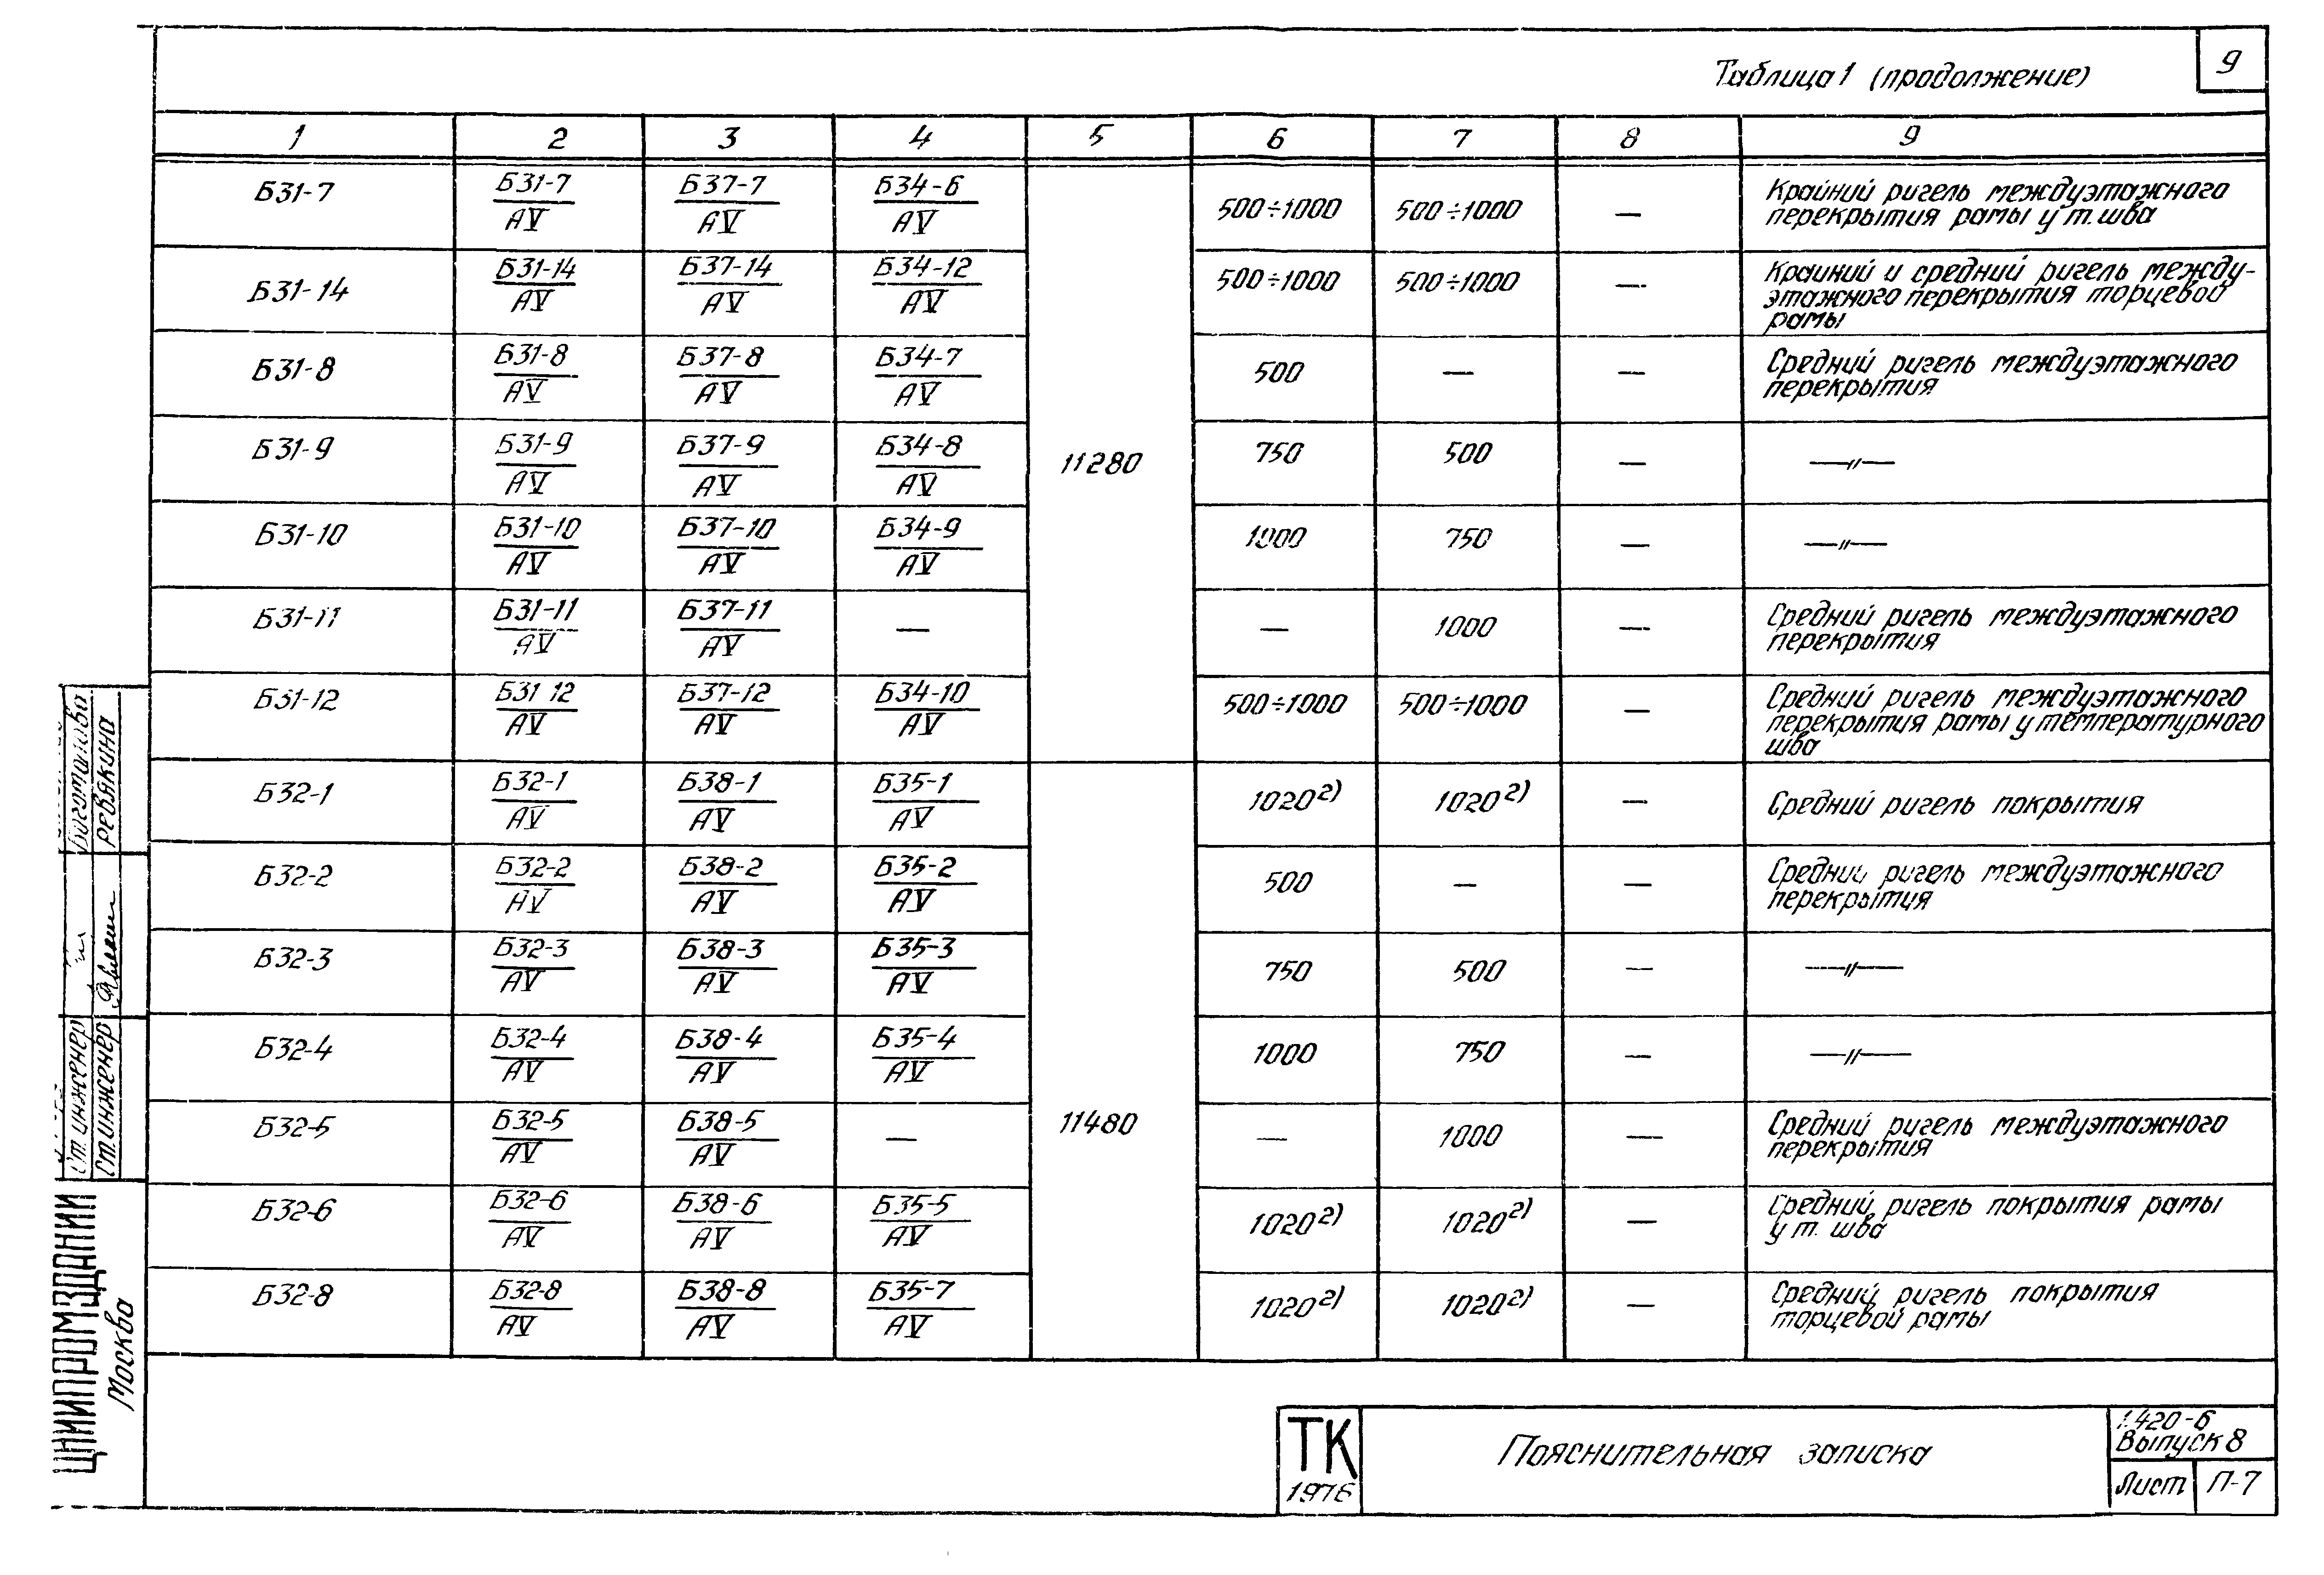 9
Таблица 1 (продолжение)
1 2 3 4 5 6 7 8 9
Б31-7 Б31-7/АV Б37-7/АV Б34-6/АV 500÷1000 500÷1000 — Крайний ригель междуэтажного
перекрытия рамы у т. шва
Б31-14 Б31-14/АV Б37-14/АV Б34-12/АV 500÷1000 500÷1000 — Крайний и средний ригель между-
этажного перекрытия торцевой
рамы
Б31-8 Б31-8/АV Б37-8/АV Б34-7/АV 500 — — Средний ригель междуэтажного
перекрытия
Б31-9 Б31-9/АV Б37-9/АV Б34-8/АV 11280 750 500 — —"—
Б31-10 Б31-10/АV Б37-10/АV Б34-9/АV 1000 750 — —"—
Б31-11 Б31-11/АV Б37-11/АV — — 1000 — Средний ригель междуэтажного
перекрытия
Б31-12 Б31 12/АV Б37-12/АV Б34-10/АV 500÷1000 500÷1000 — Средний ригель междуэтажного
перекрытия рамы у температурного
шва
Б32-1 Б32-1/АV Б38-1/АV Б35-1/АV 1020²⁾ 1020²⁾ — Средний ригель покрытия
Б32-2 Б32-2/АV Б38-2/АV Б35-2/АV 500 — — Средний ригель междуэтажного
перекрытия
Б32-3 Б32-3/АV Б38-3/АV Б35-3/АV 750 500 — —"—
Б32-4 Б32-4/АV Б38-4/АV Б35-4/АV 1000 750 — —"—
Б32-5 Б32-5/АV Б38-5/АV — 11480 — 1000 — Средний ригель междуэтажного
перекрытия
Б32-6 Б32-6/АV Б38-6/АV Б35-5/АV 1020²⁾ 1020²⁾ — Средний ригель покрытия рамы
у т. шва
Б32-8 Б32-8/АV Б38-8/АV Б35-7/АV 1020²⁾ 1020²⁾ — Средний ригель покрытия
торцевой рамы
Ст. инженер
Ст. инженер Ревякина
ЦНИИПРОМЗДАНИЙ
Москва
ТК
1976
Пояснительная записка
1.420-6
Выпуск 8
Лист П-7